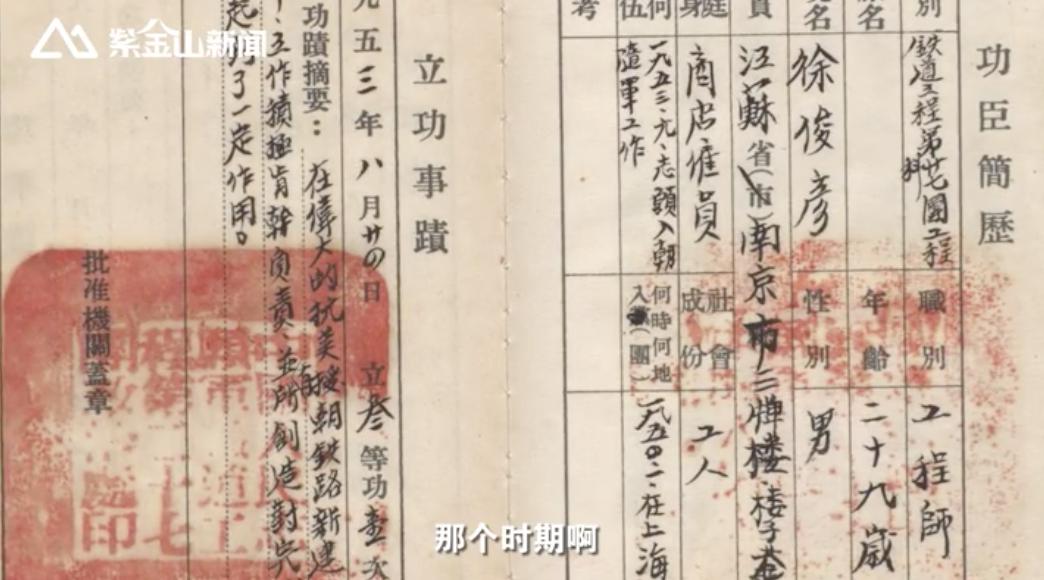 紫金山新闻
功臣簡歷
別
鉄道工程第廿七團工程
職別
工程師
名
年齡
二十九歲
名
徐俊彦
性別
男
江蘇省(市)南京市三牌楼·楼子巷
庭
身
商店雇員
社會
成份
工人
何
伍
一九五三·元·志願入朝
隨軍工作
何時何地
入黨(團)
一九五〇·二·在上海
考
立功事蹟
五三年八月廿四日 立叁等功壹次
功蹟摘要：
在偉大的抗美援朝鉄路新建
工作積極肯幹負責·並所創造對完
起到了一定作用。
批准機關蓋章
那个时期啊